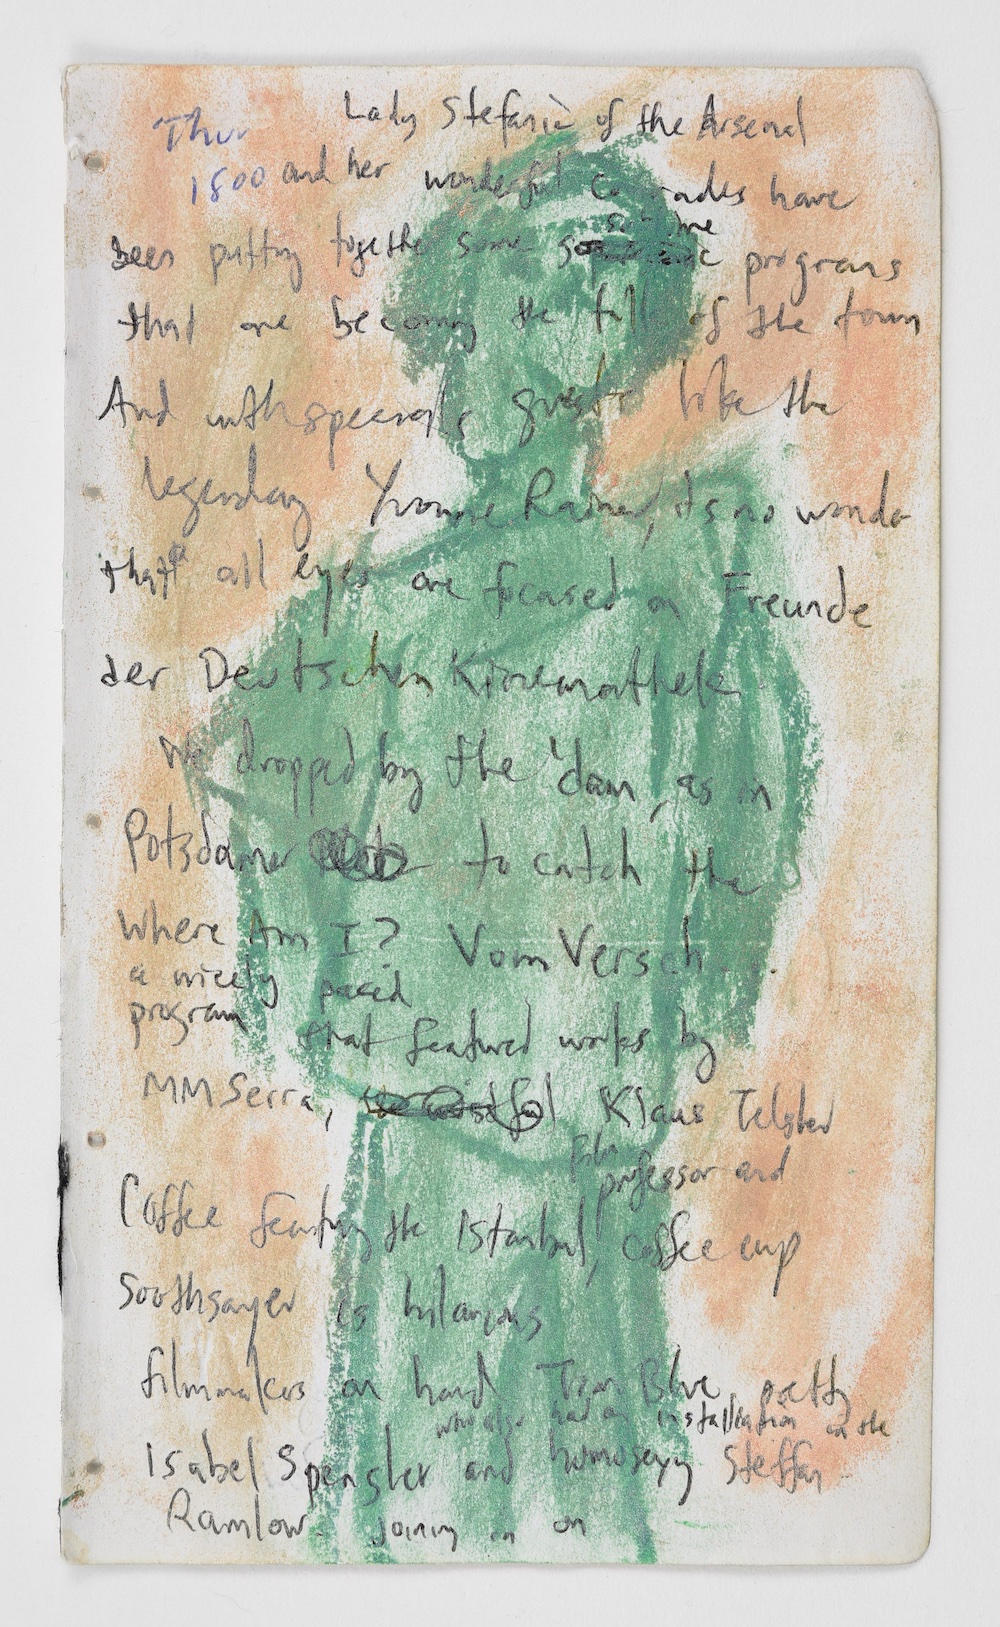 Thur
Lady Stefanie of the Arsenal
1800 and her wonderful comrades have
been putting together some
programs
that are becoming the talk of the town
And with specials guests like the
legendary Yvonne Rainer, its no wonder
that all eyes are focused on Freunde
der Deutschen Kinemathek
We dropped by the 'dam, as in
Potsdamer to catch the
Where Am I? Vom Versch...
a nicely paced
program
that featured works by
MM Serra, Klaus Telscher
professor and
Coffee featuring the Istanbul, coffee cup
soothsayer is hilarious
filmmakers on hand Blue, pretty
who also had an installation in the
Isabel Spengler and homosexy Steffan
Ramlow. joining in on